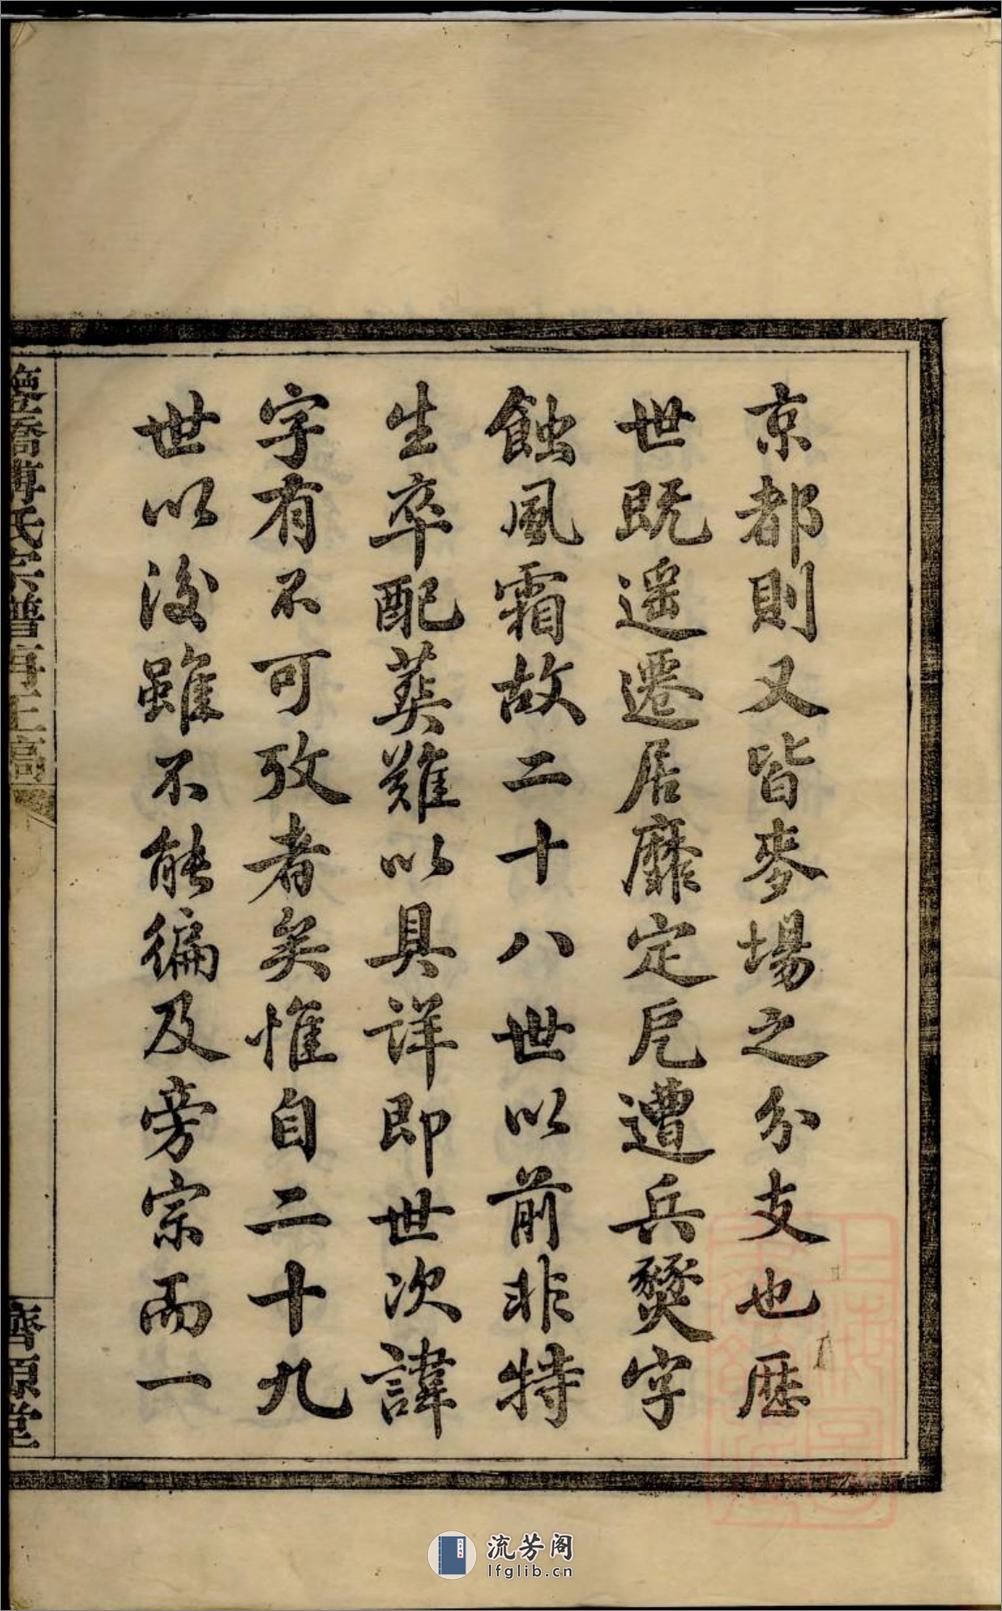 京都則又皆麥場之分支也歷
世既遥遷居靡定戹遭兵燹字
蝕風霜故二十八世以前非特
生卒配葬難以具詳即世次諱
字有不可攷者矣惟自二十九
世以後雖不能徧及旁宗而一
橋傅氏宗譜再正稿
濟源堂
流芳阁
lfglib.cn